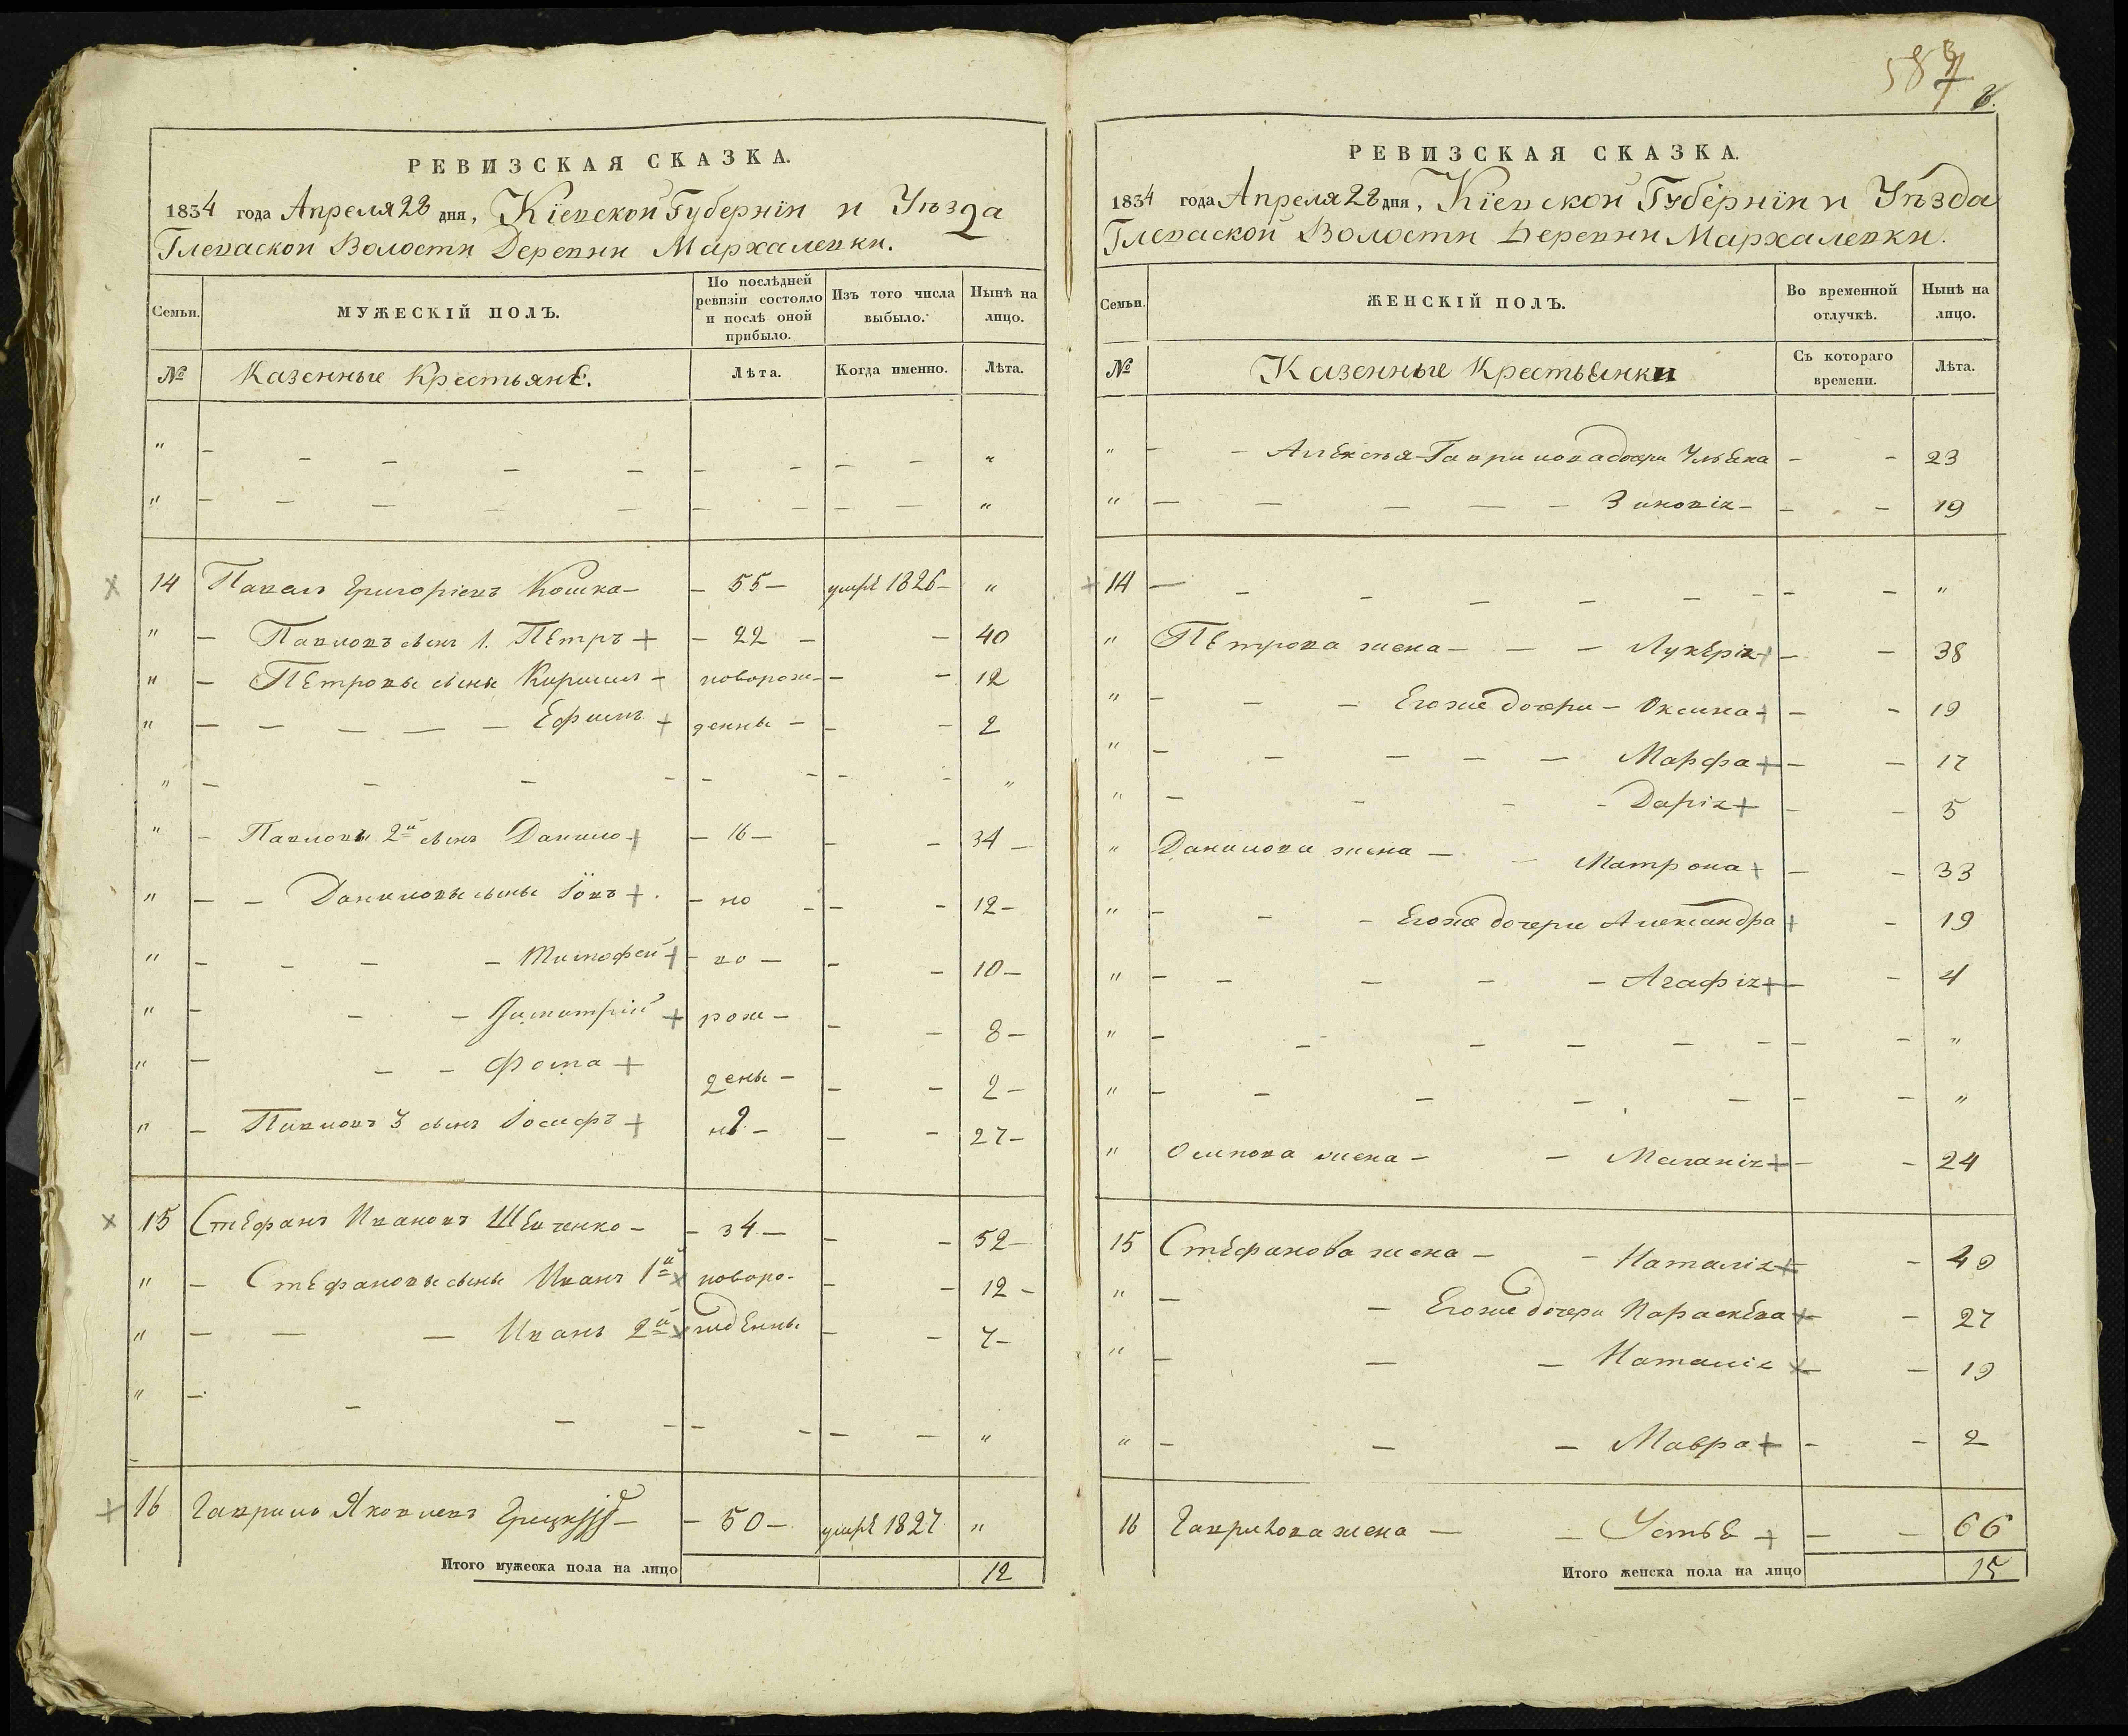 587
8.
РЕВИЗСКАЯ СКАЗКА.
1834 года Апреля 28 дня, Кіевской Губерніи и Уѣзда
Глеваской Волости Деревни Мархалевки.
Семьи.
МУЖЕСКІЙ ПОЛЪ.
По послѣдней ревизіи состояло и послѣ оной прибыло.
Изъ того числа выбыло.
Нынѣ на лицо.
№ Казенные Крестьяне. Лѣта. Когда именно. Лѣта.
" - - - - - - - - - "
" - - - - - - - - - "
14 Павелъ Григоріевъ Кошка - 55 - умре 1826 - "
" - Павловъ сынъ 1. Петръ + - 22 - - 40
" - Петровы сыны Кирилъ - новорож - - 12
" - - - - - Ефимъ + денны - - 2
" - - - - - - - - "
" - Павловъ 2й сынъ Данило + - 16 - - 34 -
" - - Даниловы сыны Іовъ + - но - - 12 -
" - - - - Тимофей + - во - - 10 -
" - - - Димитрій + рож - - 8 -
" - - - Фома + дены - - 2 -
" - Павловъ 3 сынъ Іосифъ + 9 - - 27 -
15 Стефанъ Ивановъ Шевченко - - 34 - - 52 -
" - Стефановы сыны Иванъ 1й новоро- - 12 -
" - - - Иванъ 2й жденны - - 7 -
" - - - - - - - - "
16 Гаврило Яковлевъ - 50 - умре 1827 "
Итого мужеска пола на лицо 12
РЕВИЗСКАЯ СКАЗКА.
1834 года Апреля 28 дня, Кіевской Губерніи и Уѣзда
Глеваской Волости Деревни Мархалевки.
Семьи.
ЖЕНСКІЙ ПОЛЪ.
Во временной отлучкѣ.
Нынѣ на лицо.
№ Казенные Крестьянки Съ котораго времени. Лѣта.
" - - Алексѣя Гаврилова дочери Ульяна - - 23
" - - - - - Зиновія - - - 19
14 - - - - - - - - "
" Петрова жена - - - Лукерія + - - 38
" - - - Егоже дочери - Оксина + - - 19
" - - - - - Марфа + - - 17
" - - - - Дарія + - - 5
" Данилова жена - - Матрона + - - 33
" - - - Егоже дочери Александра + - 19
" - - - - - Агафія + - - 4
" - - - - - - - - "
" - - - - - - - "
" Осипова жена - - Меланія + - - 24
15 Стефанова жена - - Наталія + - 49
" - - Егоже дочери Параскева + - 27
" - - - Наталія - 19
" - - - Мавра + - - 2
16 Гаврилова жена - - Устья + - - 66
Итого женска пола на лицо 15